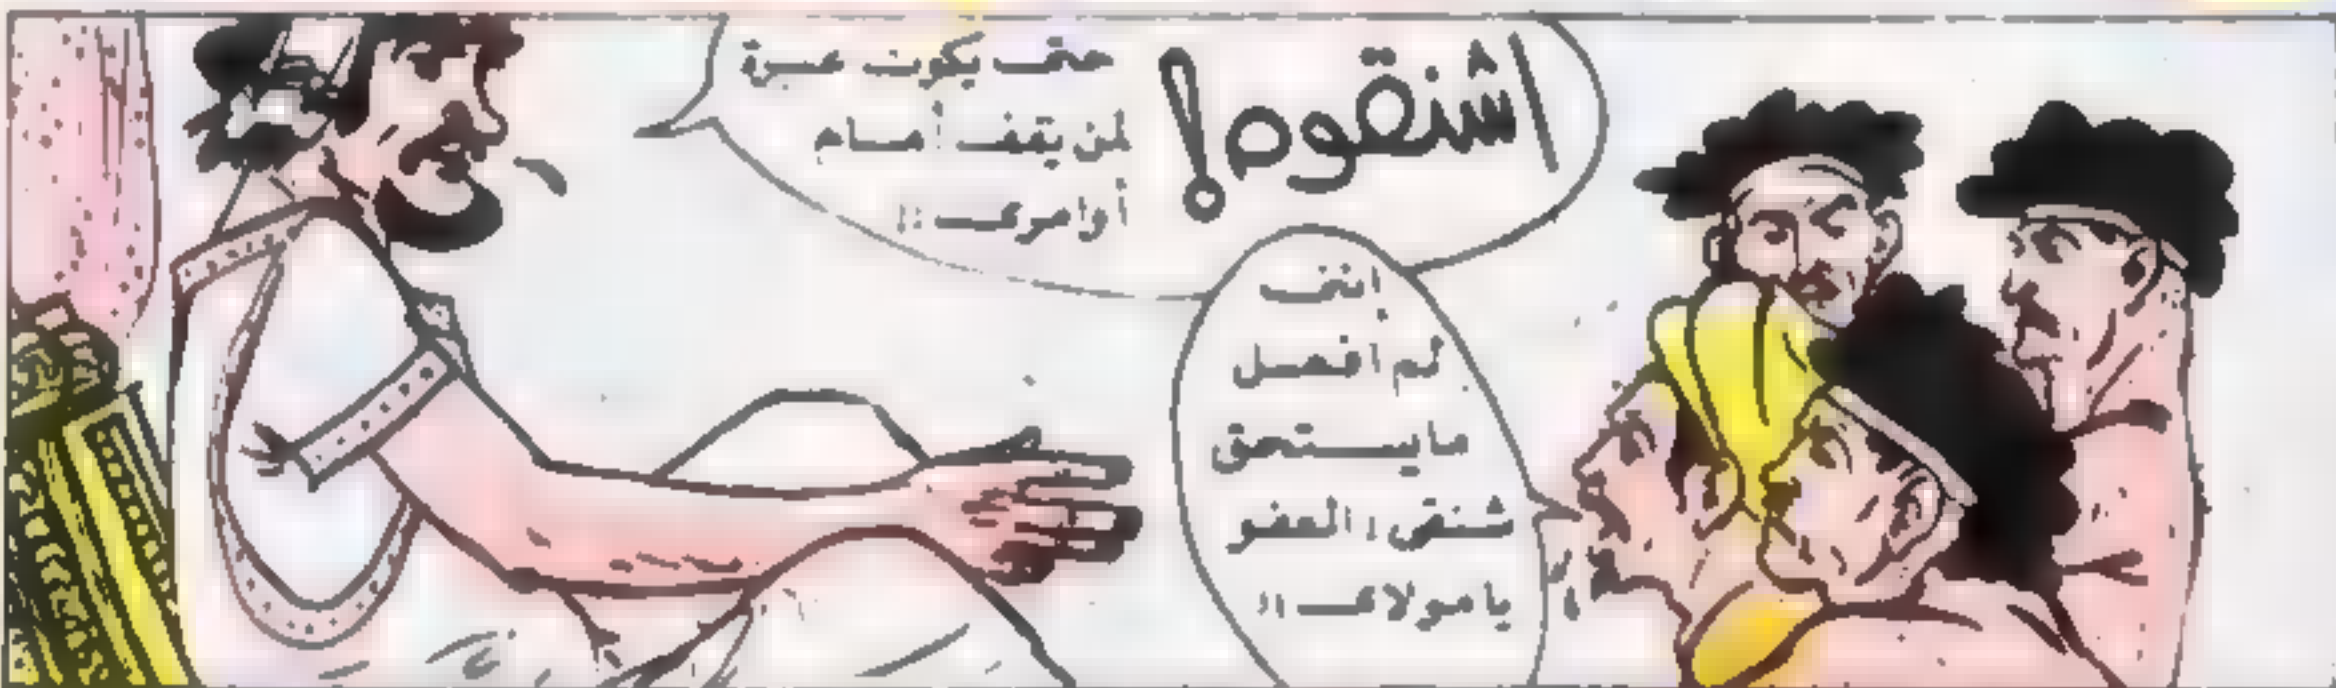 اشنقوه!
حتى يكون عبرة
لمن يقف أمام
أوامرى !!
إننى
لم افعل
ما يستحق
شنقى ، العفو
يا مولاى !!